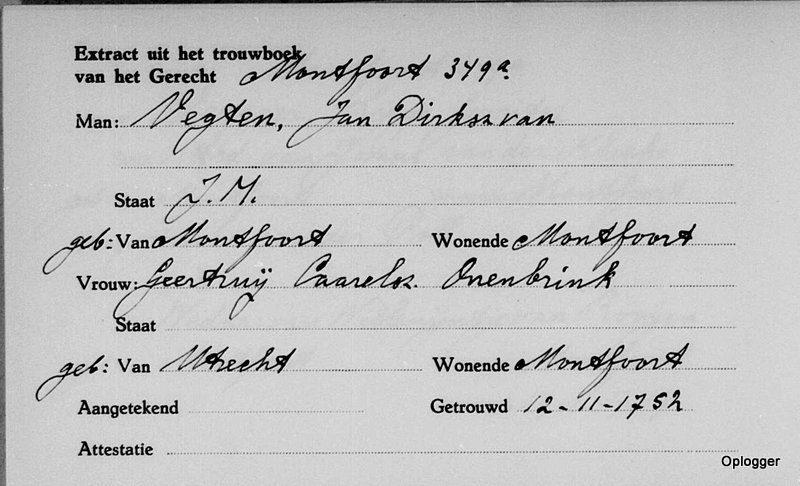 Extract uit het trouwboek
van het Gerecht Montfoort 349a.
Man: Vegten, Jan Dirksz van
Staat J. M.
geb: Van Montfoort Wonende Montfoort
Vrouw: Geertruij Caarelsz. Onenbrink
Staat
geb: Van Utrecht Wonende Montfoort
Aangetekend Getrouwd 12-11-1752
Attestatie
Oplogger